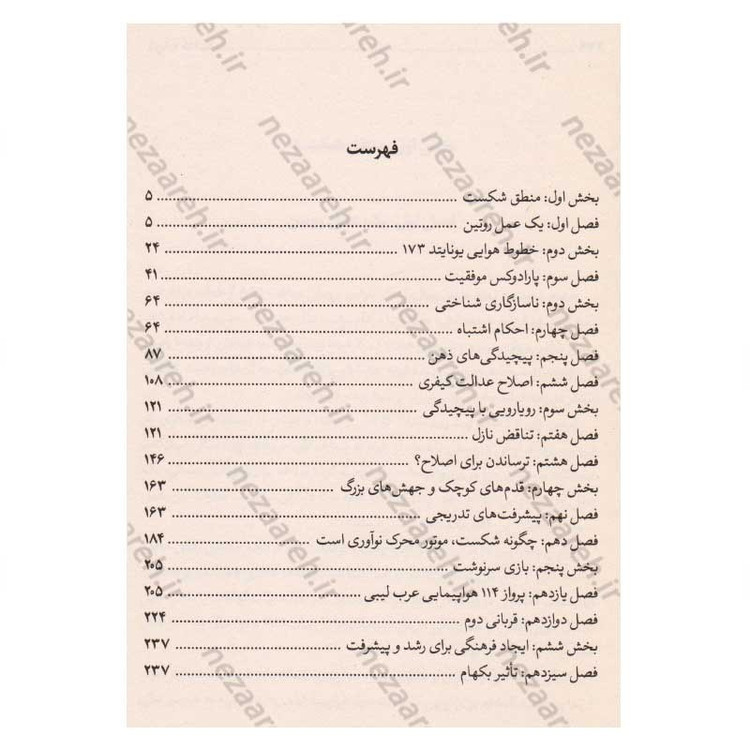 فهرست
بخش اول: منطق شکست ........ ۵
فصل اول: یک عمل روتین ........ ۵
بخش دوم: خطوط هوایی یونایتد ۱۷۳ ........ ۲۴
فصل سوم: پارادوکس موفقیت ........ ۴۱
بخش دوم: ناسازگاری شناختی ........ ۶۴
فصل چهارم: احکام اشتباه ........ ۶۴
فصل پنجم: پیچیدگی‌های ذهن ........ ۸۷
فصل ششم: اصلاح عدالت کیفری ........ ۱۰۸
بخش سوم: رویارویی با پیچیدگی ........ ۱۲۱
فصل هفتم: تناقض نازل ........ ۱۲۱
فصل هشتم: ترساندن برای اصلاح؟ ........ ۱۴۶
بخش چهارم: قدم‌های کوچک و جهش‌های بزرگ ........ ۱۶۳
فصل نهم: پیشرفت‌های تدریجی ........ ۱۶۳
فصل دهم: چگونه شکست، موتور محرک نوآوری است ........ ۱۸۴
بخش پنجم: بازی سرنوشت ........ ۲۰۵
فصل یازدهم: پرواز ۱۱۴ هواپیمایی عرب لیبی ........ ۲۰۵
فصل دوازدهم: قربانی دوم ........ ۲۲۴
بخش ششم: ایجاد فرهنگی برای رشد و پیشرفت ........ ۲۳۷
فصل سیزدهم: تأثیر بکهام ........ ۲۳۷
nezaareh.ir